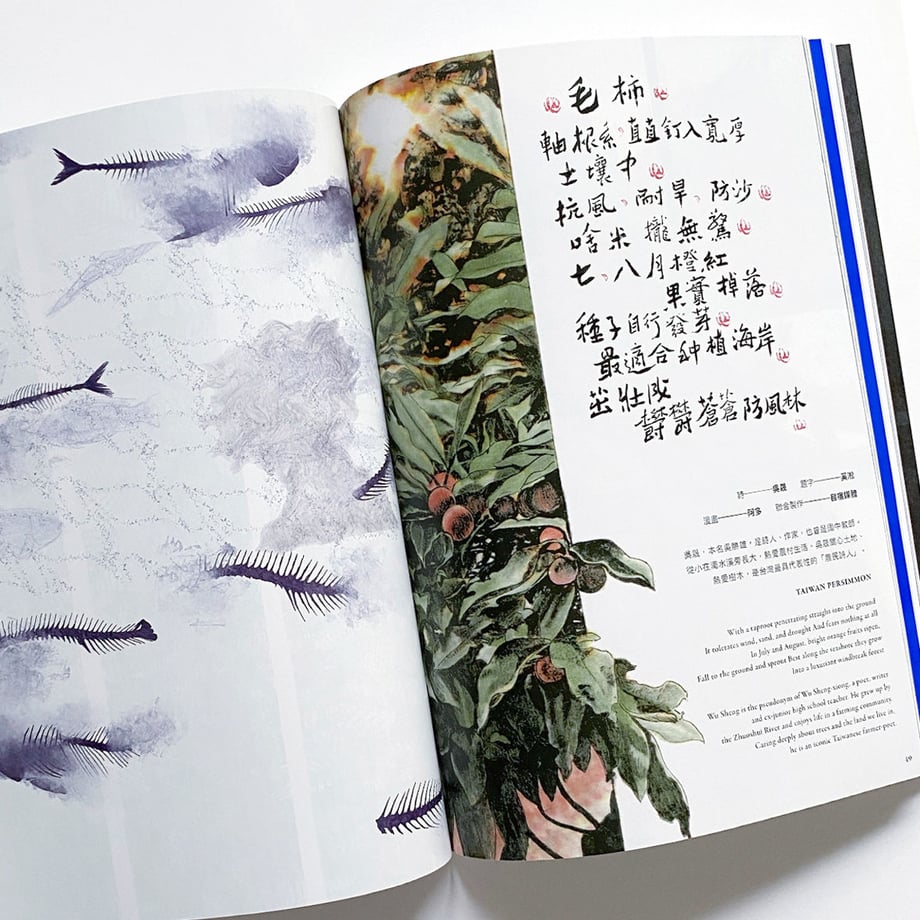 毛柿
軸根系、直直釘入寬厚
土壤中
抗風、耐旱、防沙
啥米攏無驚
七、八月橙紅
果實掉落
種子自行發芽
最適合種植海岸
壯成
鬱鬱蒼蒼防風林
詩———吳晟
漫畫———阿多
吳晟，本名吳勝雄，是詩人、作家，也曾是國中教師。
從小在濁水溪旁長大，熱愛農村生活。吳晟關心土地、
熱愛樹木，是台灣最具代表性的「農民詩人」。
TAIWAN PERSIMMON
With a taproot penetrating straight into the ground
It tolerates wind, sand, and drought And fears nothing at all
In July and August, bright orange fruits open,
Fall to the ground and sprout Best along the seashore they grow
Into a luxuriant windbreak forest
Wu Sheng is the pseudonym of Wu Sheng-xiong, a poet, writer
and ex-junior high school teacher. He grew up by
the Zhuoshui River and enjoys life in a farming community.
Caring deeply about trees and the land we live in,
he is an iconic Taiwanese farmer poet.